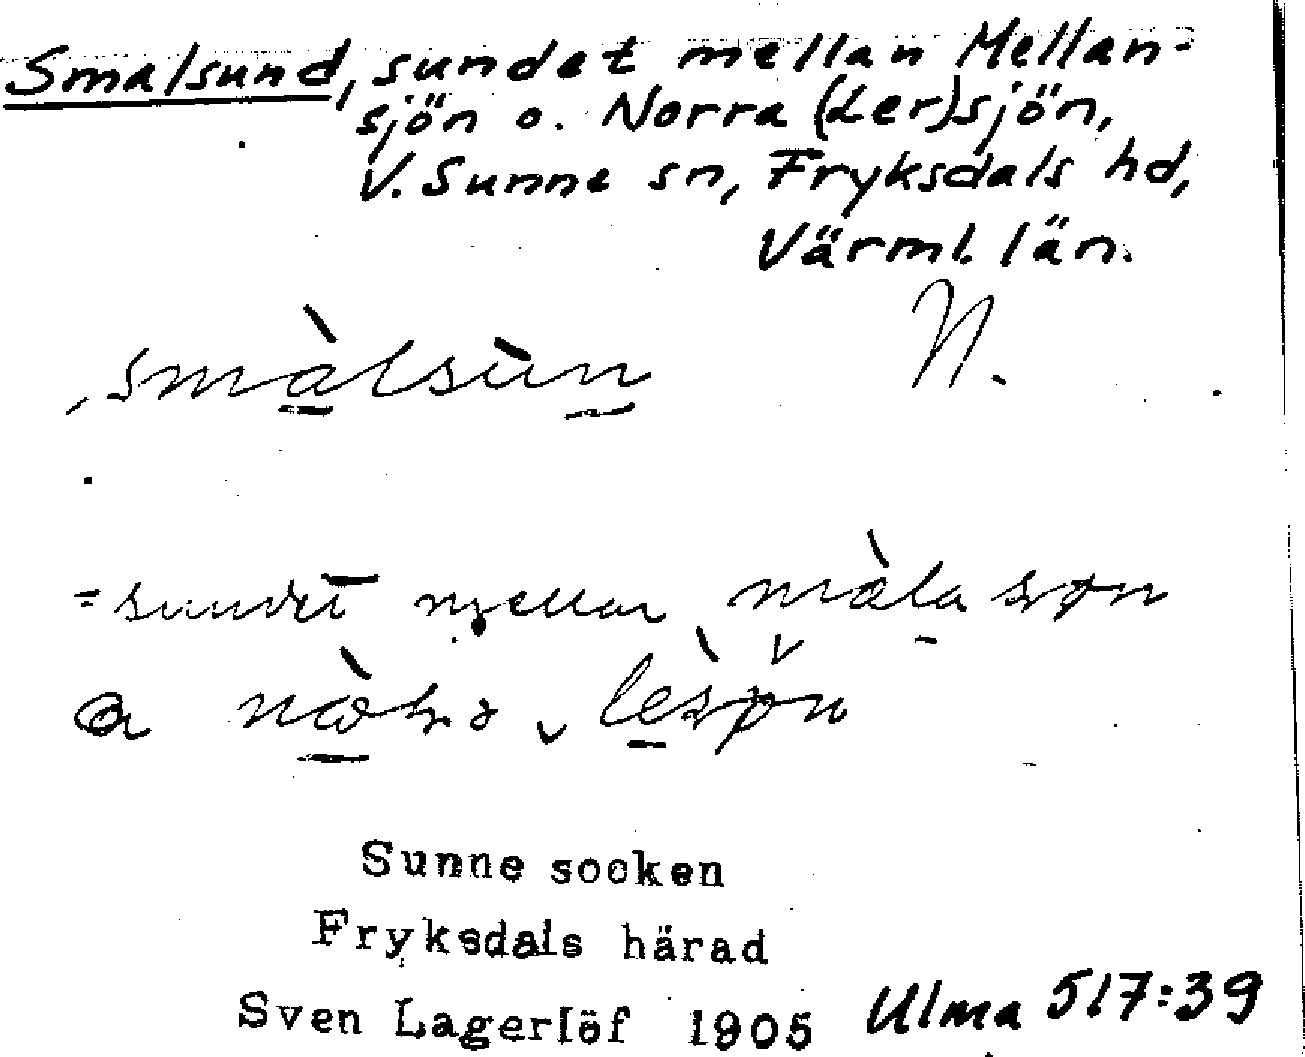 Smalsund, sundet mellan Mellan-
sjön o. Norra (Ler)sjön,
V. Sunne sn, Fryksdals hd,
Värml. län.
N.
smàlsùn
= sundet mellan màla søn
a
Sunne socken
Fryksdals härad
Sven Lagerlöf 1905 Ulma 517:39